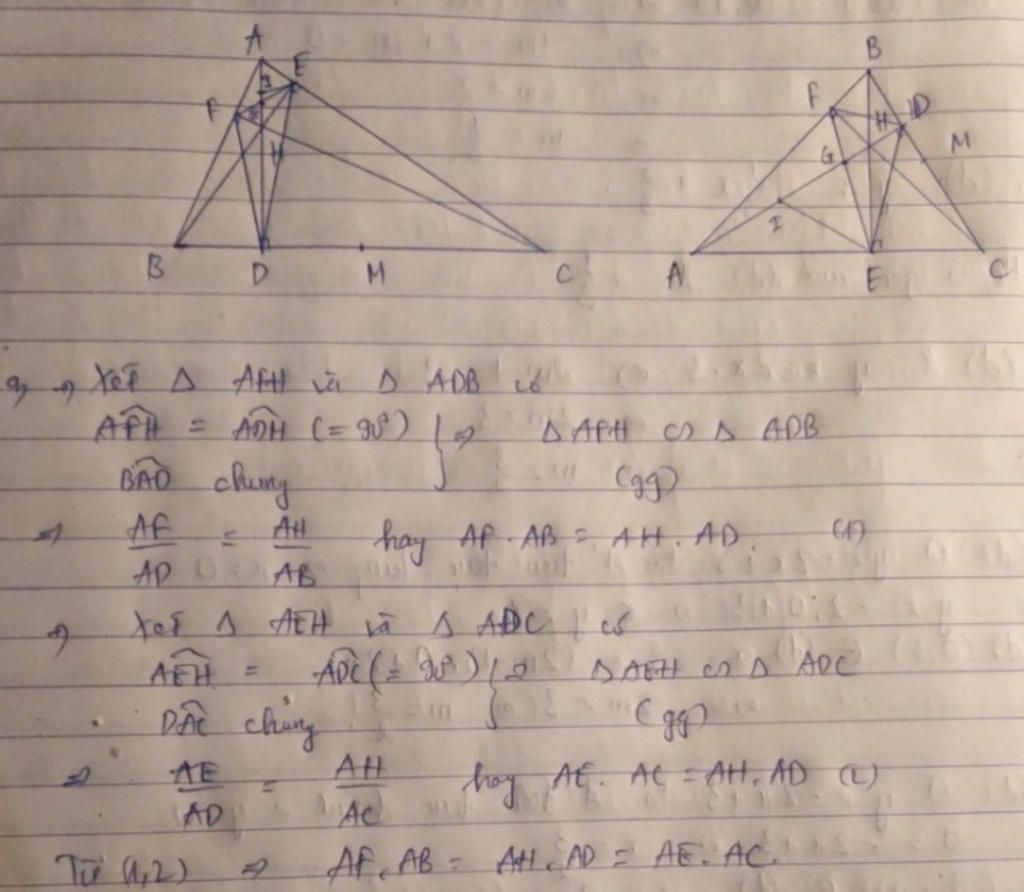 A
E
F
H
B D M C
B
F H D
G M
I
A E C
a, → Xét Δ AFH và Δ ADB có
AFH = ADH (= 90°) } ⇒ Δ AFH ∽ Δ ADB
BAD chung (gg)
⇒ AF/AD = AH/AB hay AF . AB = AH . AD. (1)
→ Xét Δ AEH và Δ ADC có
AEH = ADC (= 90°) } ⇒ Δ AEH ∽ Δ ADC
DAC chung (gg)
⇒ AE/AD = AH/AC hay AE . AC = AH . AD (2)
Từ (1,2) ⇒ AF . AB = AH . AD = AE . AC